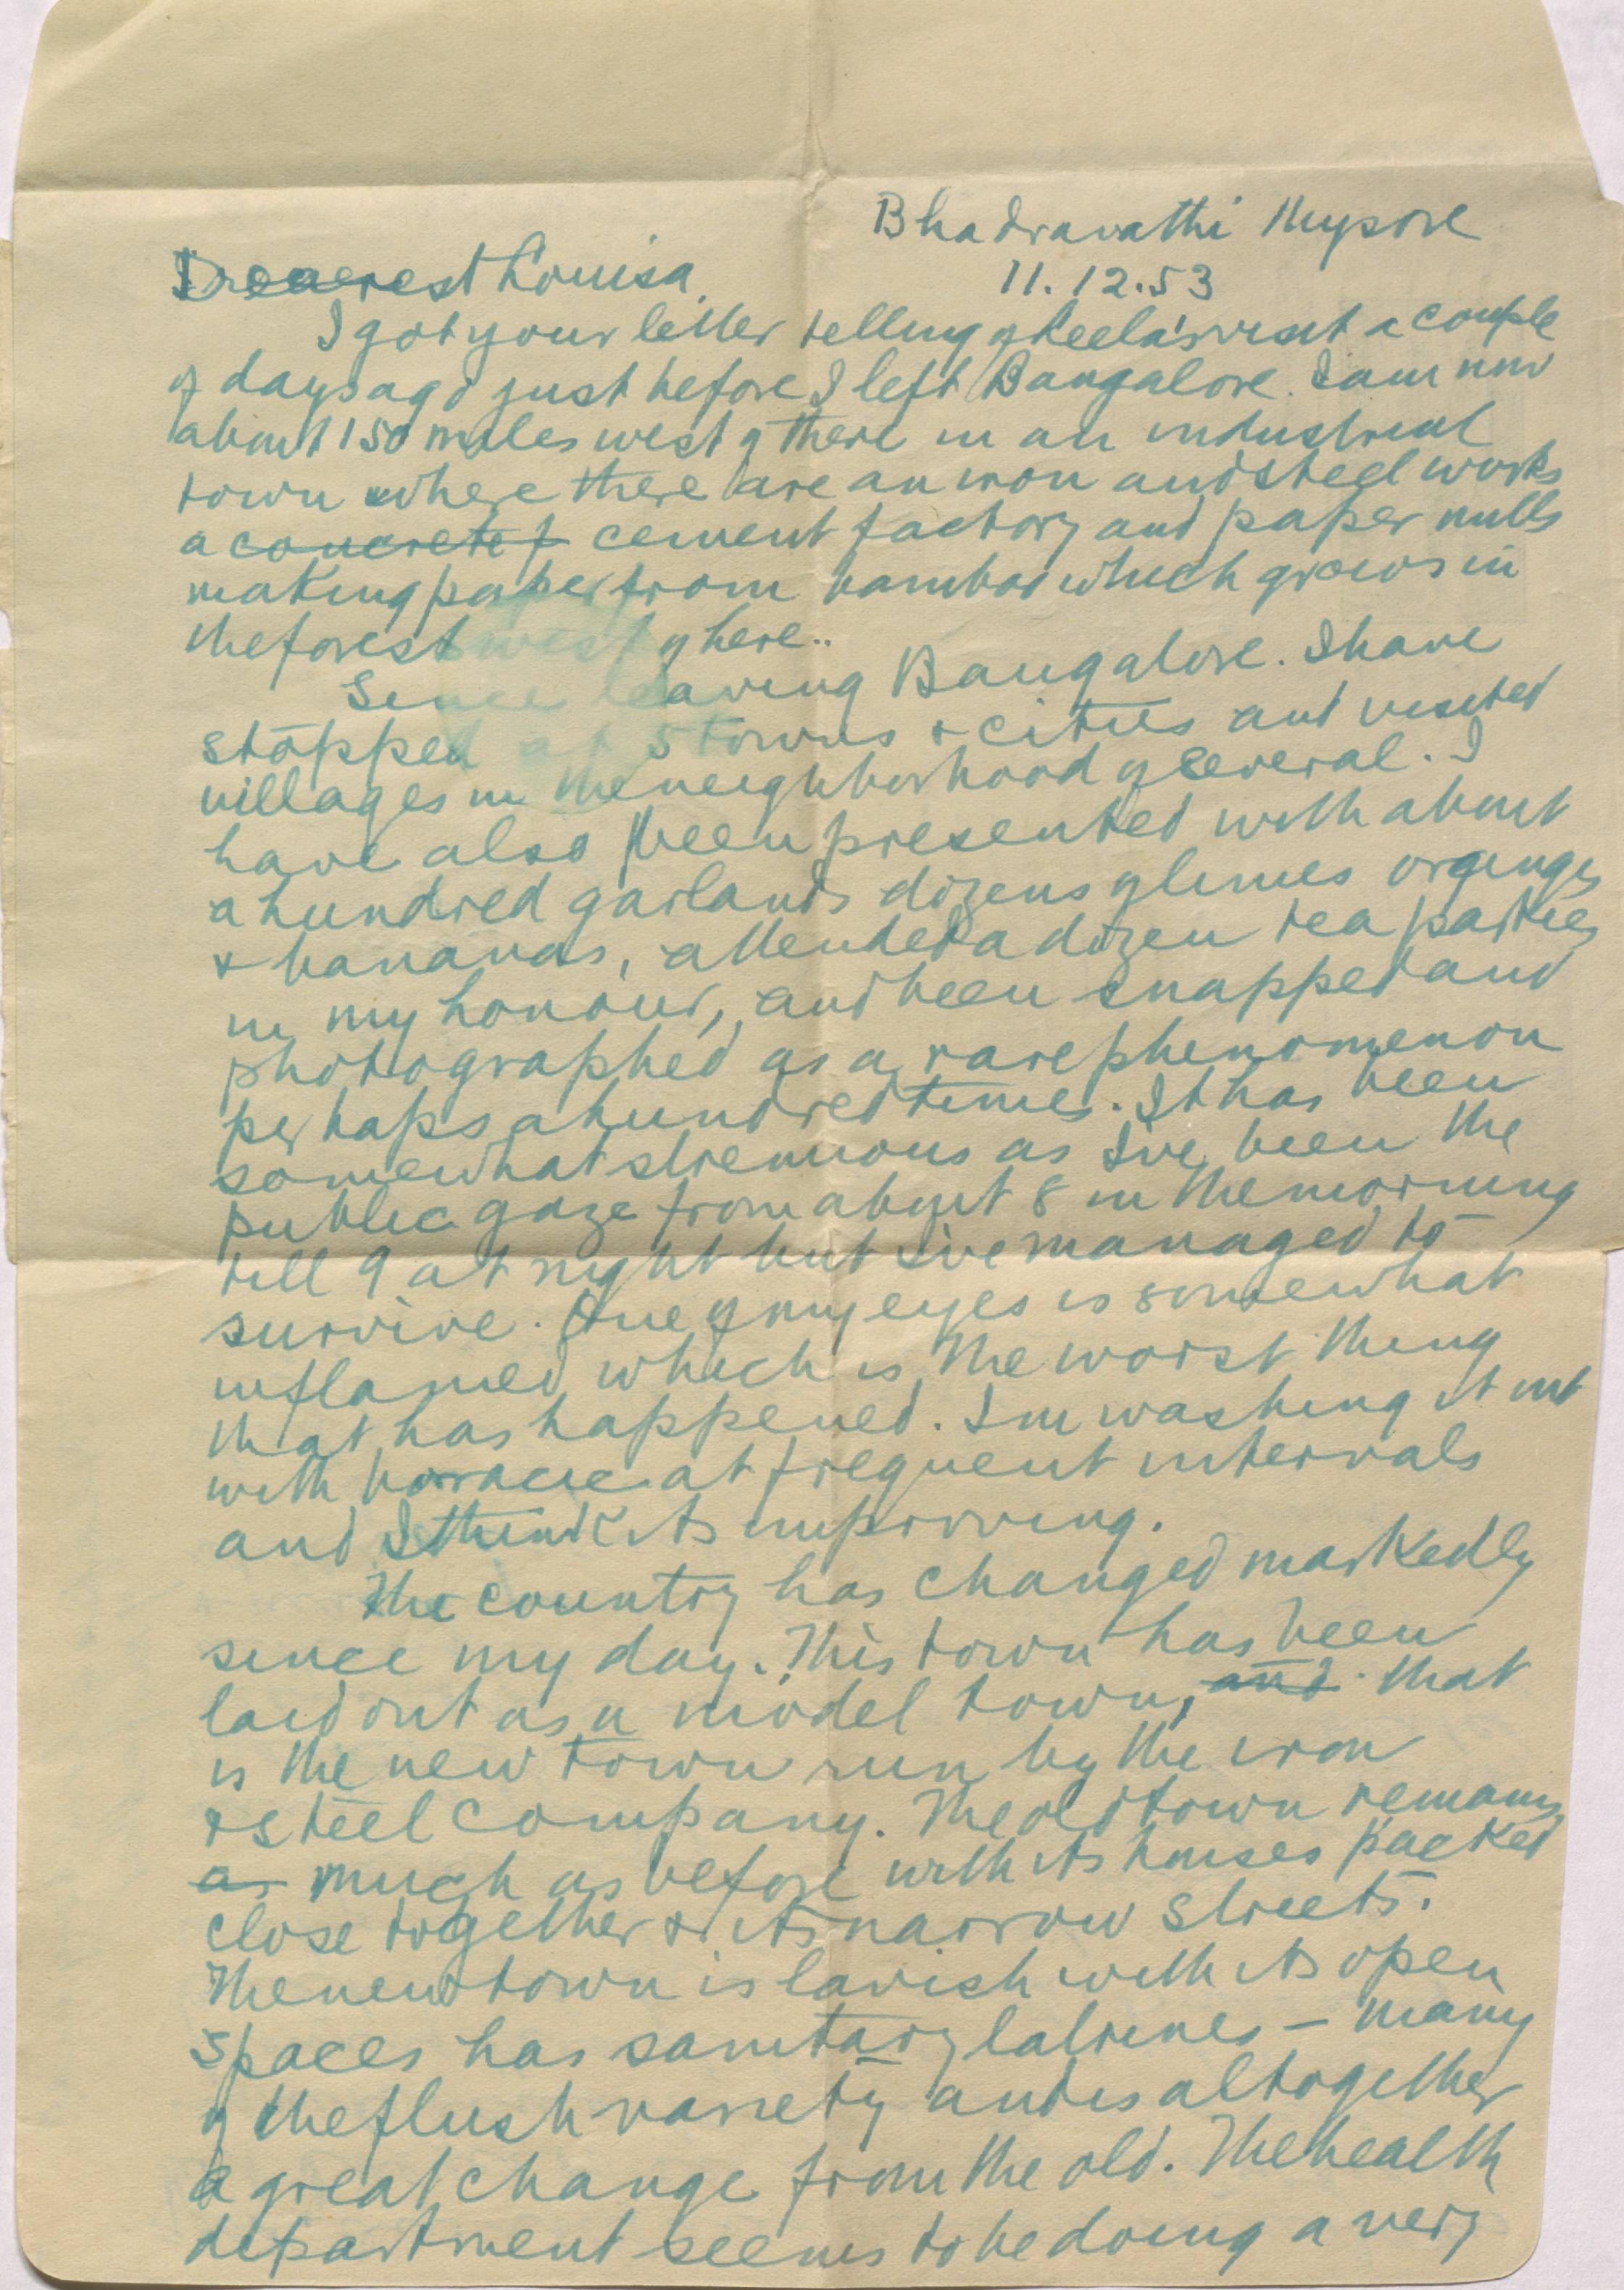 Bhadravathi Mysore
11.12.53
Dearest Louisa,
I got your letter telling of Leela's visit a couple
of days ago just before I left Bangalore. I am now
about 150 miles west of there in an industrial
town where there are an iron and steel works
a concrete f cement factory and paper mills
making paper from bamboo which grows in
the forest west of here..
Since leaving Bangalore. I have
stopped at 5 towns & cities and visited
villages in the neighborhood of several. I
have also been presented with about
a hundred garlands dozens of limes oranges
& bananas, attended a dozen tea parties
in my honour, and been snapped and
photographed as a rare phenomenon
perhaps a hundred times. It has been
somewhat strenuous as I've been the
public gaze from about 8 in the morning
till 9 at night but I've managed to
survive. One of my eyes is somewhat
inflamed which is the worst thing
that has happened. I'm washing it out
with at frequent intervals
and I think its improving.
The country has changed markedly
since my day. This town has been
laid out as a model town, and that
is the new town run by the iron
& steel company. The old town remains
as much as before with its houses packed
close together & its narrow streets.
The new town is lavish with its open
spaces has sanitary latrines – many
of the flush variety and is altogether
a great change from the old. The health
department seems to be doing a very